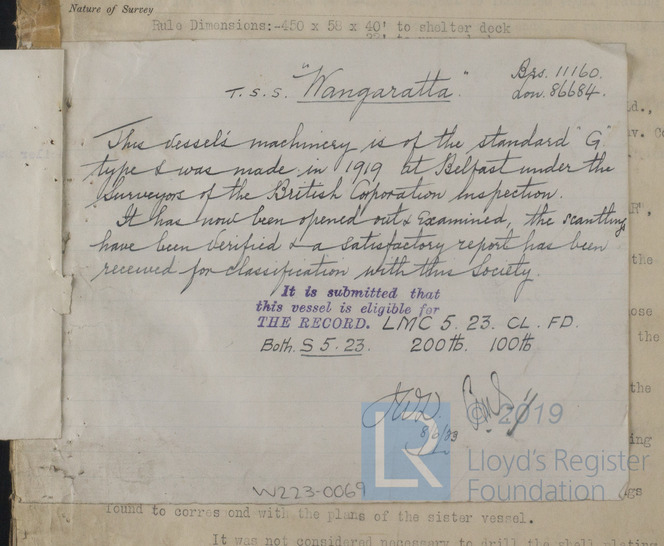 Nature of Survey
Rule Dimensions:-450 x 58 x 40' to shelter dock
T.S.S. "Wangaratta".
Brs. 11160.
Lon. 86684.
This vessel's machinery is of the standard "G"
type & was made in 1919 at Belfast under the
Surveyors of the British Coporation inspection.
It has now been opened out & Examined, the scantlings
have been verified & a satisfactory report has been
received for classification with this Society.
It is submitted that
this vessel is eligible for
THE RECORD. LMC 5. 23. CL. FD.
Both. S 5. 23. 200 lb. 100 lb
© 2019
Lloyd's Register
Foundation
W223-0069
found to correspond with the plans of the sister vessel.
It was not considered necessary to drill the shell plating